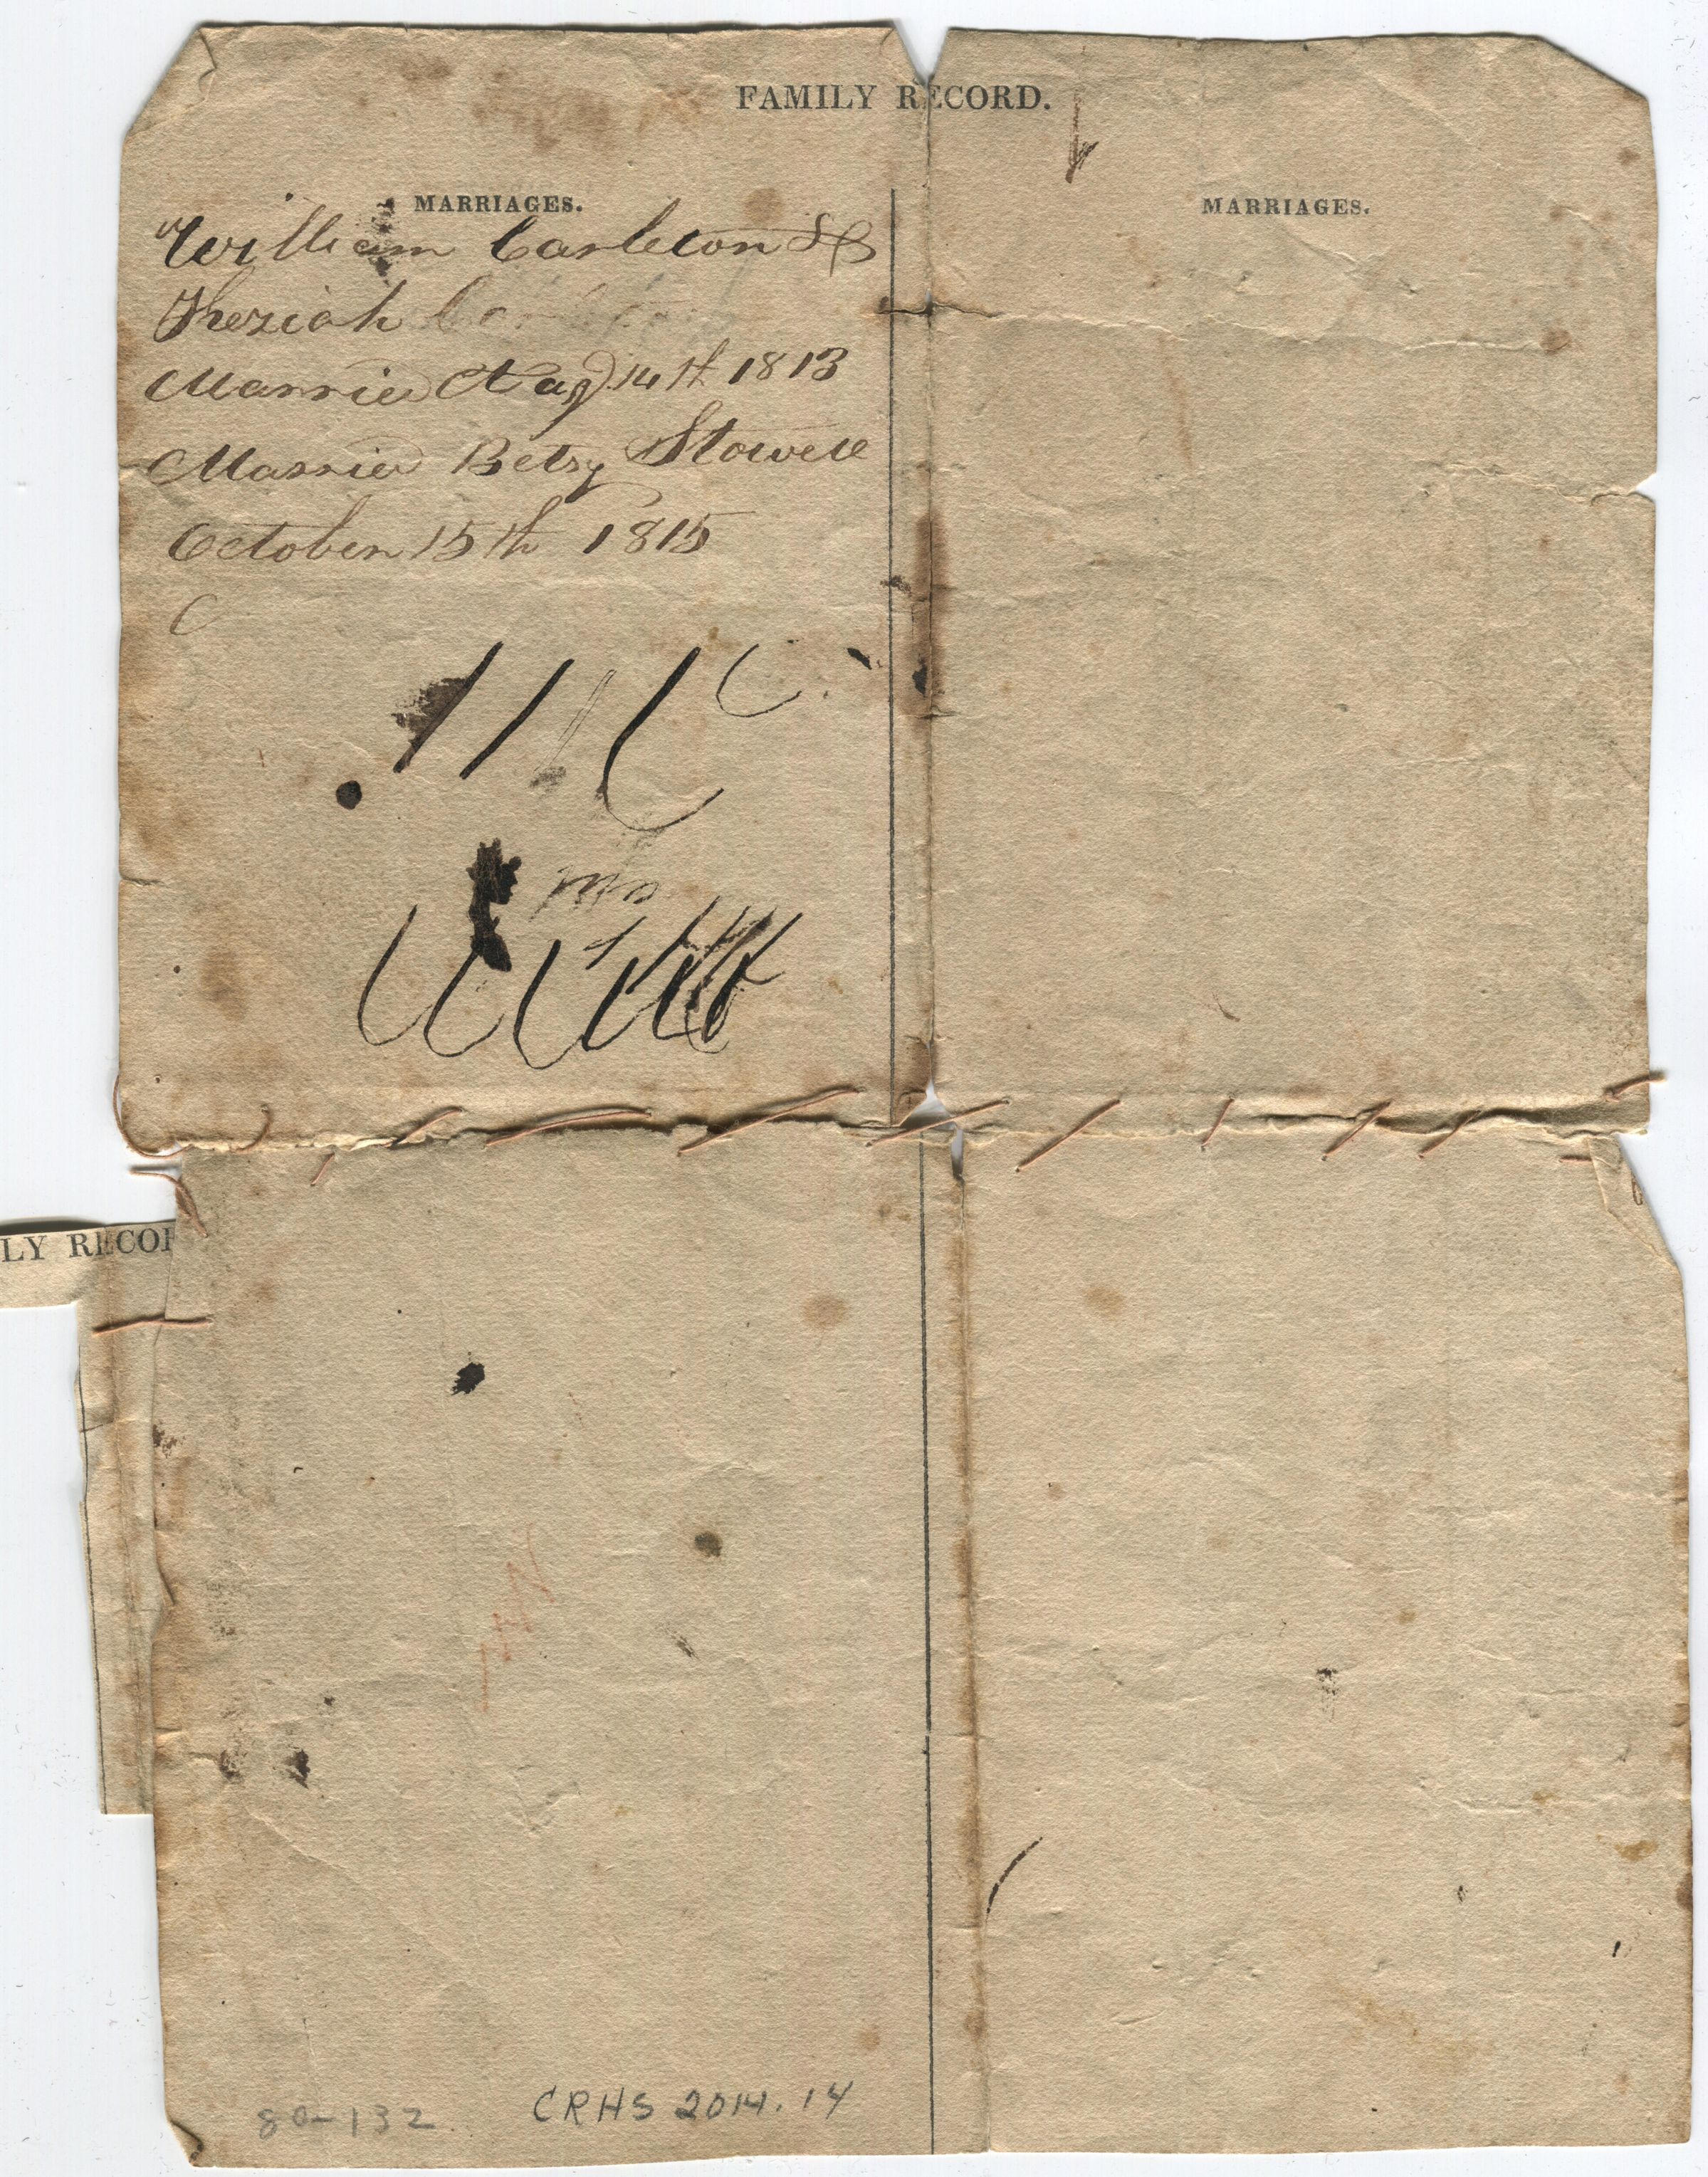 FAMILY RECORD.
MARRIAGES.
William Carleton &
Kheziah
Married 14th 1813
Married Betsy Stowell
October 15th 1815
MARRIAGES.
LY RECOR
80-132
CRHS 2014.14